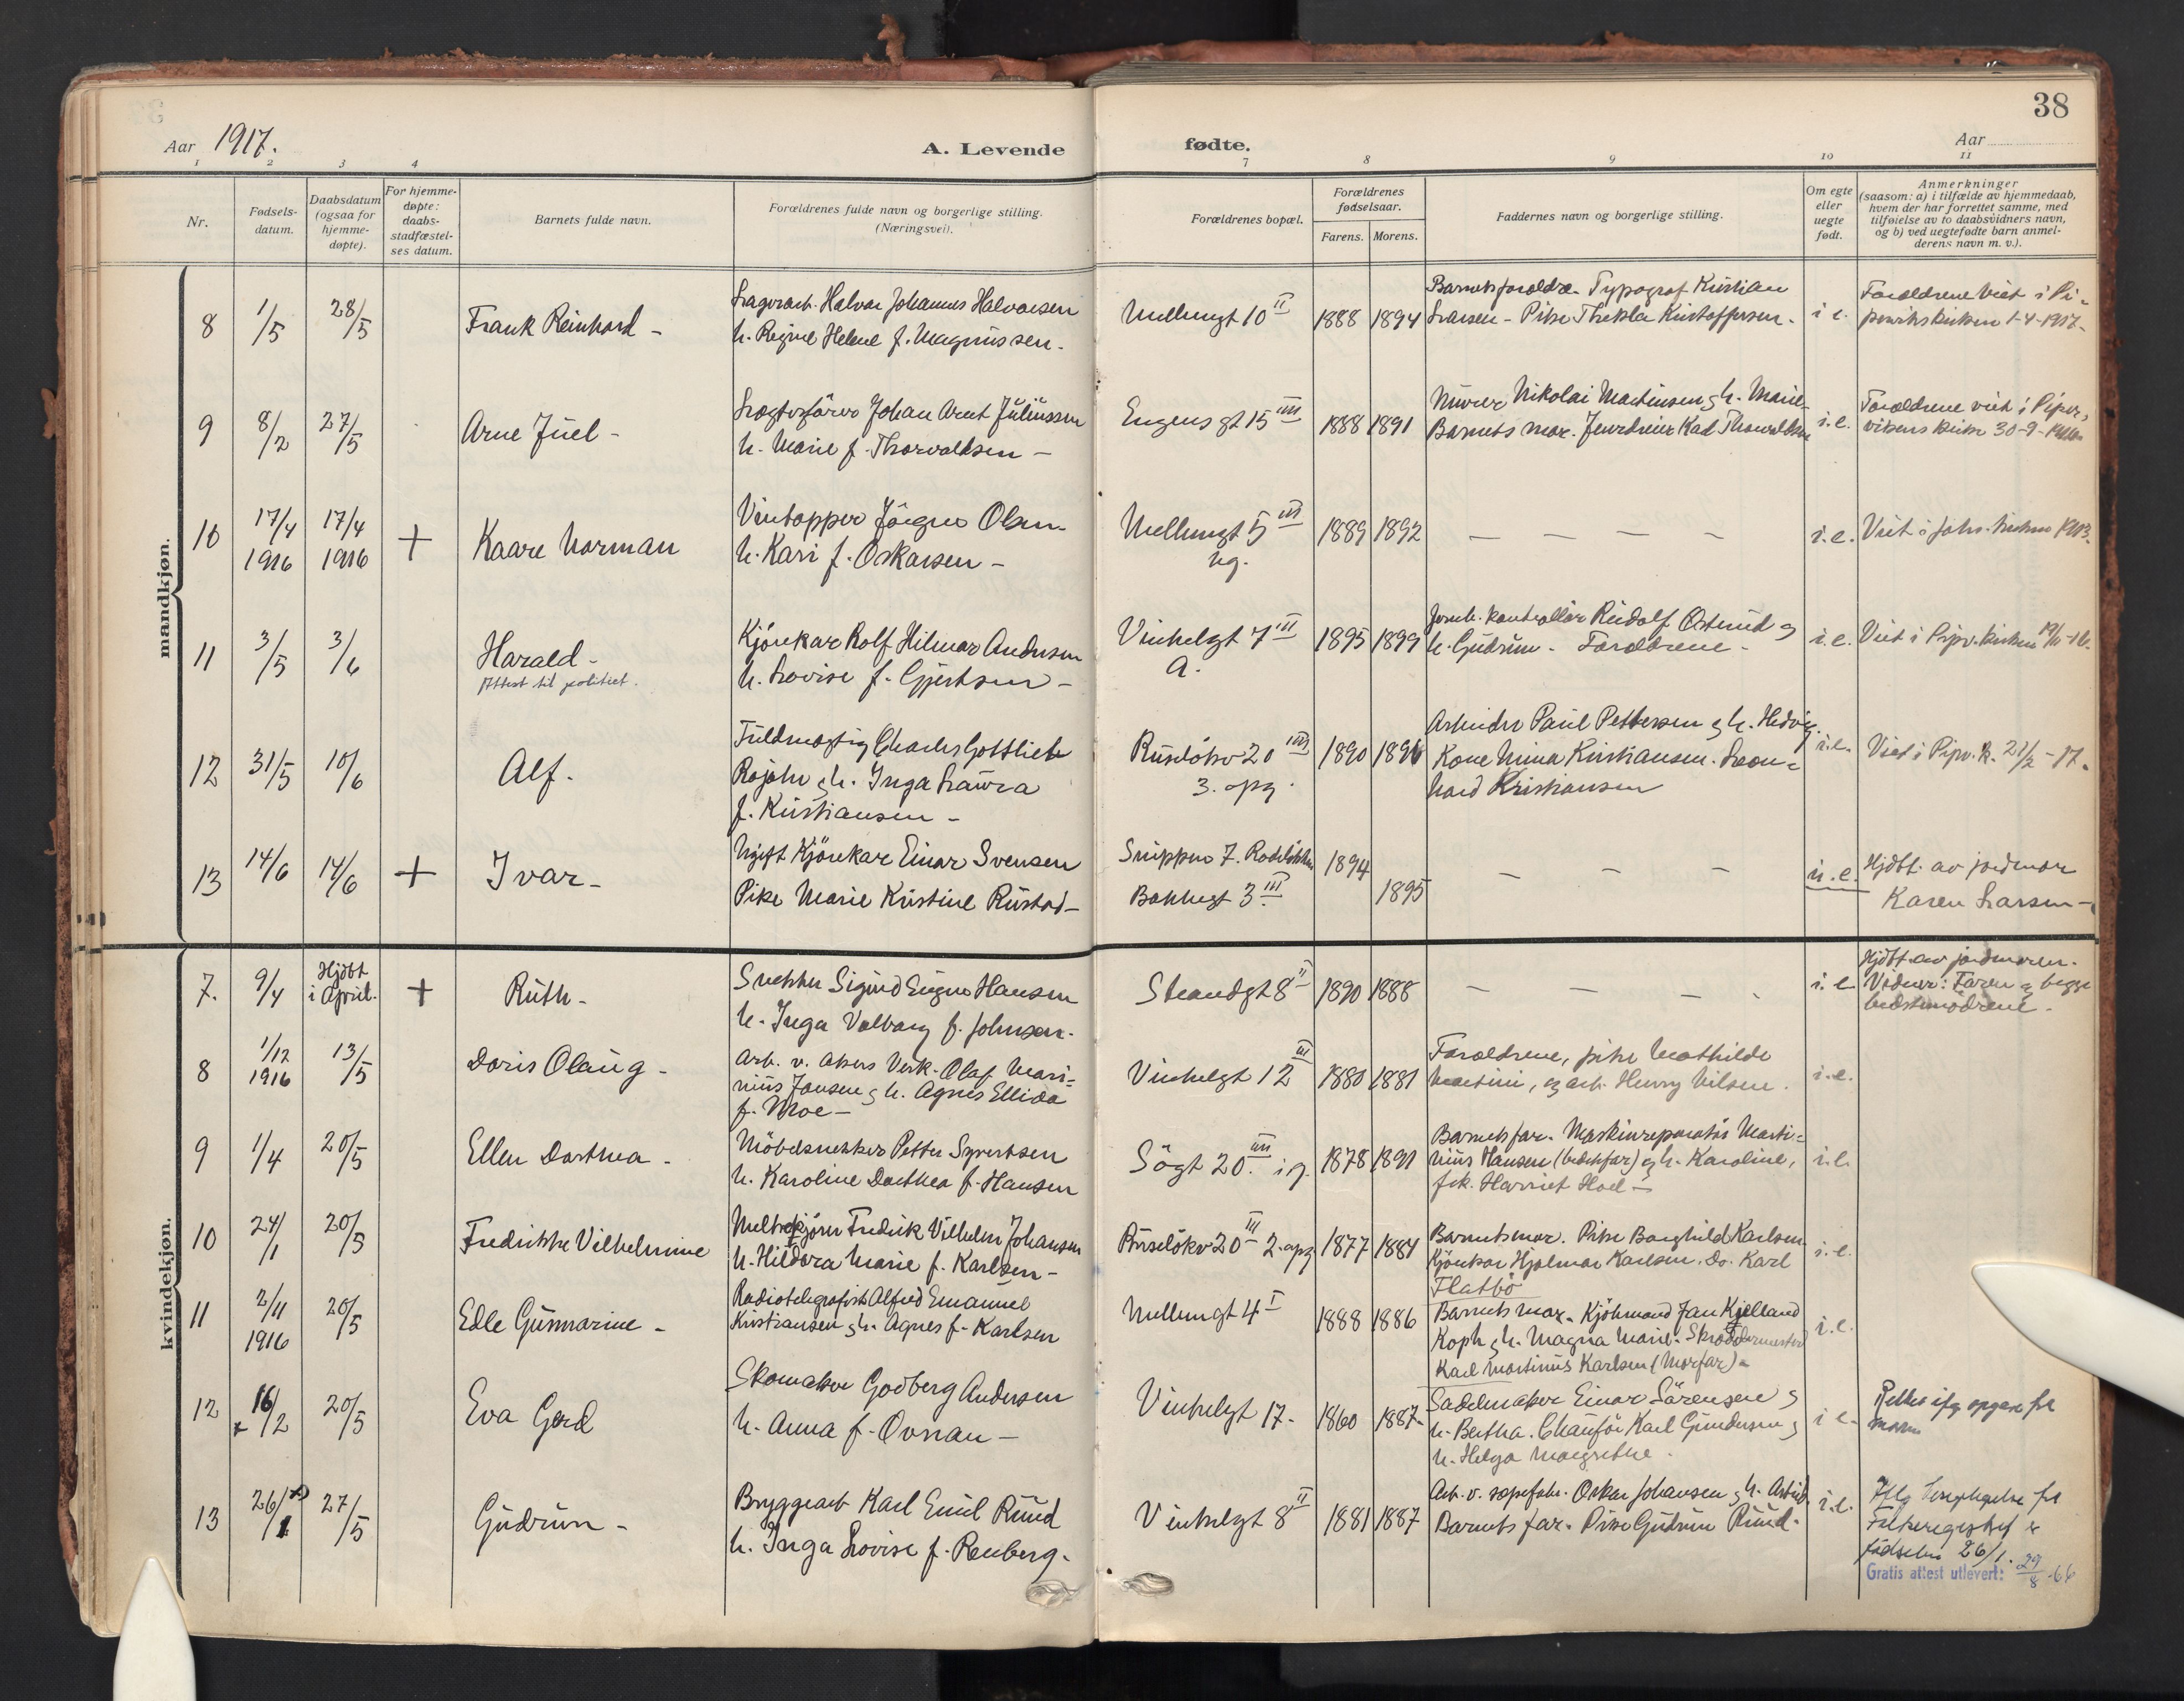 38
Aar 1917.
A. Levende
fødte.
Aar
1 2 3 4
7 8 9 10 11
Nr.
Fødsels-
datum.
Daabsdatum
(ogsaa for
hjemme-
døpte).
For hjemme-
døpte:
daabs-
stadfæstel-
ses datum.
Barnets fulde navn.
Forældrenes fulde navn og borgerlige stilling.
(Næringsvei).
Forældrenes bopæl.
Forældrenes
fødselsaar.
Farens. Morens.
Faddernes navn og borgerlige stilling.
Om egte
eller
uegte
født.
Anmerkninger
(saasom: a) i tilfælde av hjemmedaab,
hvem der har forrettet samme, med
tilføielse av to daabsvidners navn,
og b) ved uegtefødte barn anmel-
derens navn m. v.).
mandkjøn.
8
1/5
28/5
Frank Reinhard -
Lagerarb. Halvar Johannes Halvorsen
h. Regine Helene f. Magnussen.
Mellemgt 10 II
1888 1894
Barnets forældre. Typograf Kristian
Larsen - Pike Thekla Kristoffersen.
i e.
Forældrene viet i Pi-
pervikskirken 1-4-1917.
9
8/2
27/5
Arne Juel -
Johan Arnt Juliussen
h. Marie f. Thorvaldsen -
Engens gt 15 IIII
1888 1891
Murer Nikolai Martinsen & h. Marie
Barnets mor. Karl Thorvaldsen
i.e.
Forældrene viet i Piper-
vikens kirke 30-9-1916
10
17/4
1916
17/4
1916
+
Kaare Norman
Vintapper Jörgen Olsen
h. Kari f. Oskarsen -
Mellemgt 5 III
ug.
1889 1892
— — — —
i.e.
Viet i Johs. kirken 1913.
11
3/5
3/6
Harald -
Attest til politiet.
Kjörekar Rolf Hilmar Andersen
h. Lovise f. Gjertsen -
Vinkelgt 7 III
A.
1895 1899
Jernb. kontrollör Rudolf Östmud &
h. Gudrun - Forældrene -
i.e.
Viet i Pipv. kirken
12
31/5
10/6
Alf.
Fuldmægtig Charles Gottlieb
Rojahn & h. Inga Laura
f. Kristiansen -
Ruselökv 20 III
3. opg.
1890
Arbeider Paul Pettersen & h. Hedvig.
Kone Mina Kristiansen. Leon-
hard Kristiansen
i.e.
Viet i Pipv. k. 21/2 - 17.
13
14/6
14/6
+
Ivar -
Ugift Kjörekar Einar Svensen
Pike Marie Kristine Rustad -
Snippen 7. Rodelökken
Bakkegt 3 III
1894
1895
— — —
u.e.
Hjdbt. av jordmor
Karen Larsen -
kvindekjøn.
7.
9/4
Hjdbt
i April.
+
Ruth -
Snekker Sigurd Eugen Hansen
h. Inga Valborg f. Johnsen.
Strandgt 8 II
1890 1888
— — — -
i.e.
Hjdbt. av jordmoren.
Vidner: Faren & begge
bedstemödrene -
8
1/12
1916
13/5
Doris Olaug -
Arb. v. Akers Verk. Olaf Mari-
nius Jansen & h. Agnes Ellida
f. Moe -
Vinkelgt 12 III
1880 1881
Forældrene, pike Mathilde
Martini, & arb. Henry Nilsen.
i.e.
9
1/4
20/5
Ellen Dorthea -
Möbelsnekker Petter Syvertsen
h. Karoline Dorthea f. Hansen
Sögt 20. IIII ig.
1878 1891
Barnets far. Maskinreparatör Marti-
nius Hansen (bedstefar) & h. Karoline,
frk. Harriet Hoel -
i.e.
10
24/1
20/5
Fredrikke Vilhelmine
Melkekjörer Fredrik Vilhelm Johansen
h. Hildora Marie f. Karlsen -
Ruselökv 20 III 2. opg
1877 1881
Barnets mor. Pike Borghild Karlsen
Kjörekar Hjalmar Karlsen. do. Karl
Flatbö
i.e.
11
2/11
1916
20/5
Edle Gunmarine -
Radiotelegrafist Alfred Emanuel
Kristiansen & h. Agnes f. Karlsen
Mellemgt 4 I
1888 1886
Barnets mor. Kjöbmand Jan Kjelland
Koph & h. Magna Marie. Skræddermester
Karl Martinius Karlsen (Morfar) -
i.e.
12
16/2
20/5
Eva Gerd
Skomaker Godberg Andersen
h. Anna f. Ovnan -
Vinkelgt 17 -
1860 1887 -
Sadelmaker Einar Sörensen &
h. Bertha. Chauför Karl Gundersen &
h. Helga Margrethe.
i e -
Rettet ifg opgave fra
moren
13
26/1
27/5
Gudrun -
Bryggearb Karl Emil Ruud
h. Inga Lovise f. Renberg -
Vinkelgt 8 II
1881 1887
Arb. v. sæpefabr. Oskar Johansen & h. Astrid.
Barnets far. Pike Gudrun Ruud.
i.e.
Ifg fra
Folkeregistret er
födselen 26/1.
Gratis attest utlevert: 29/8 - 66